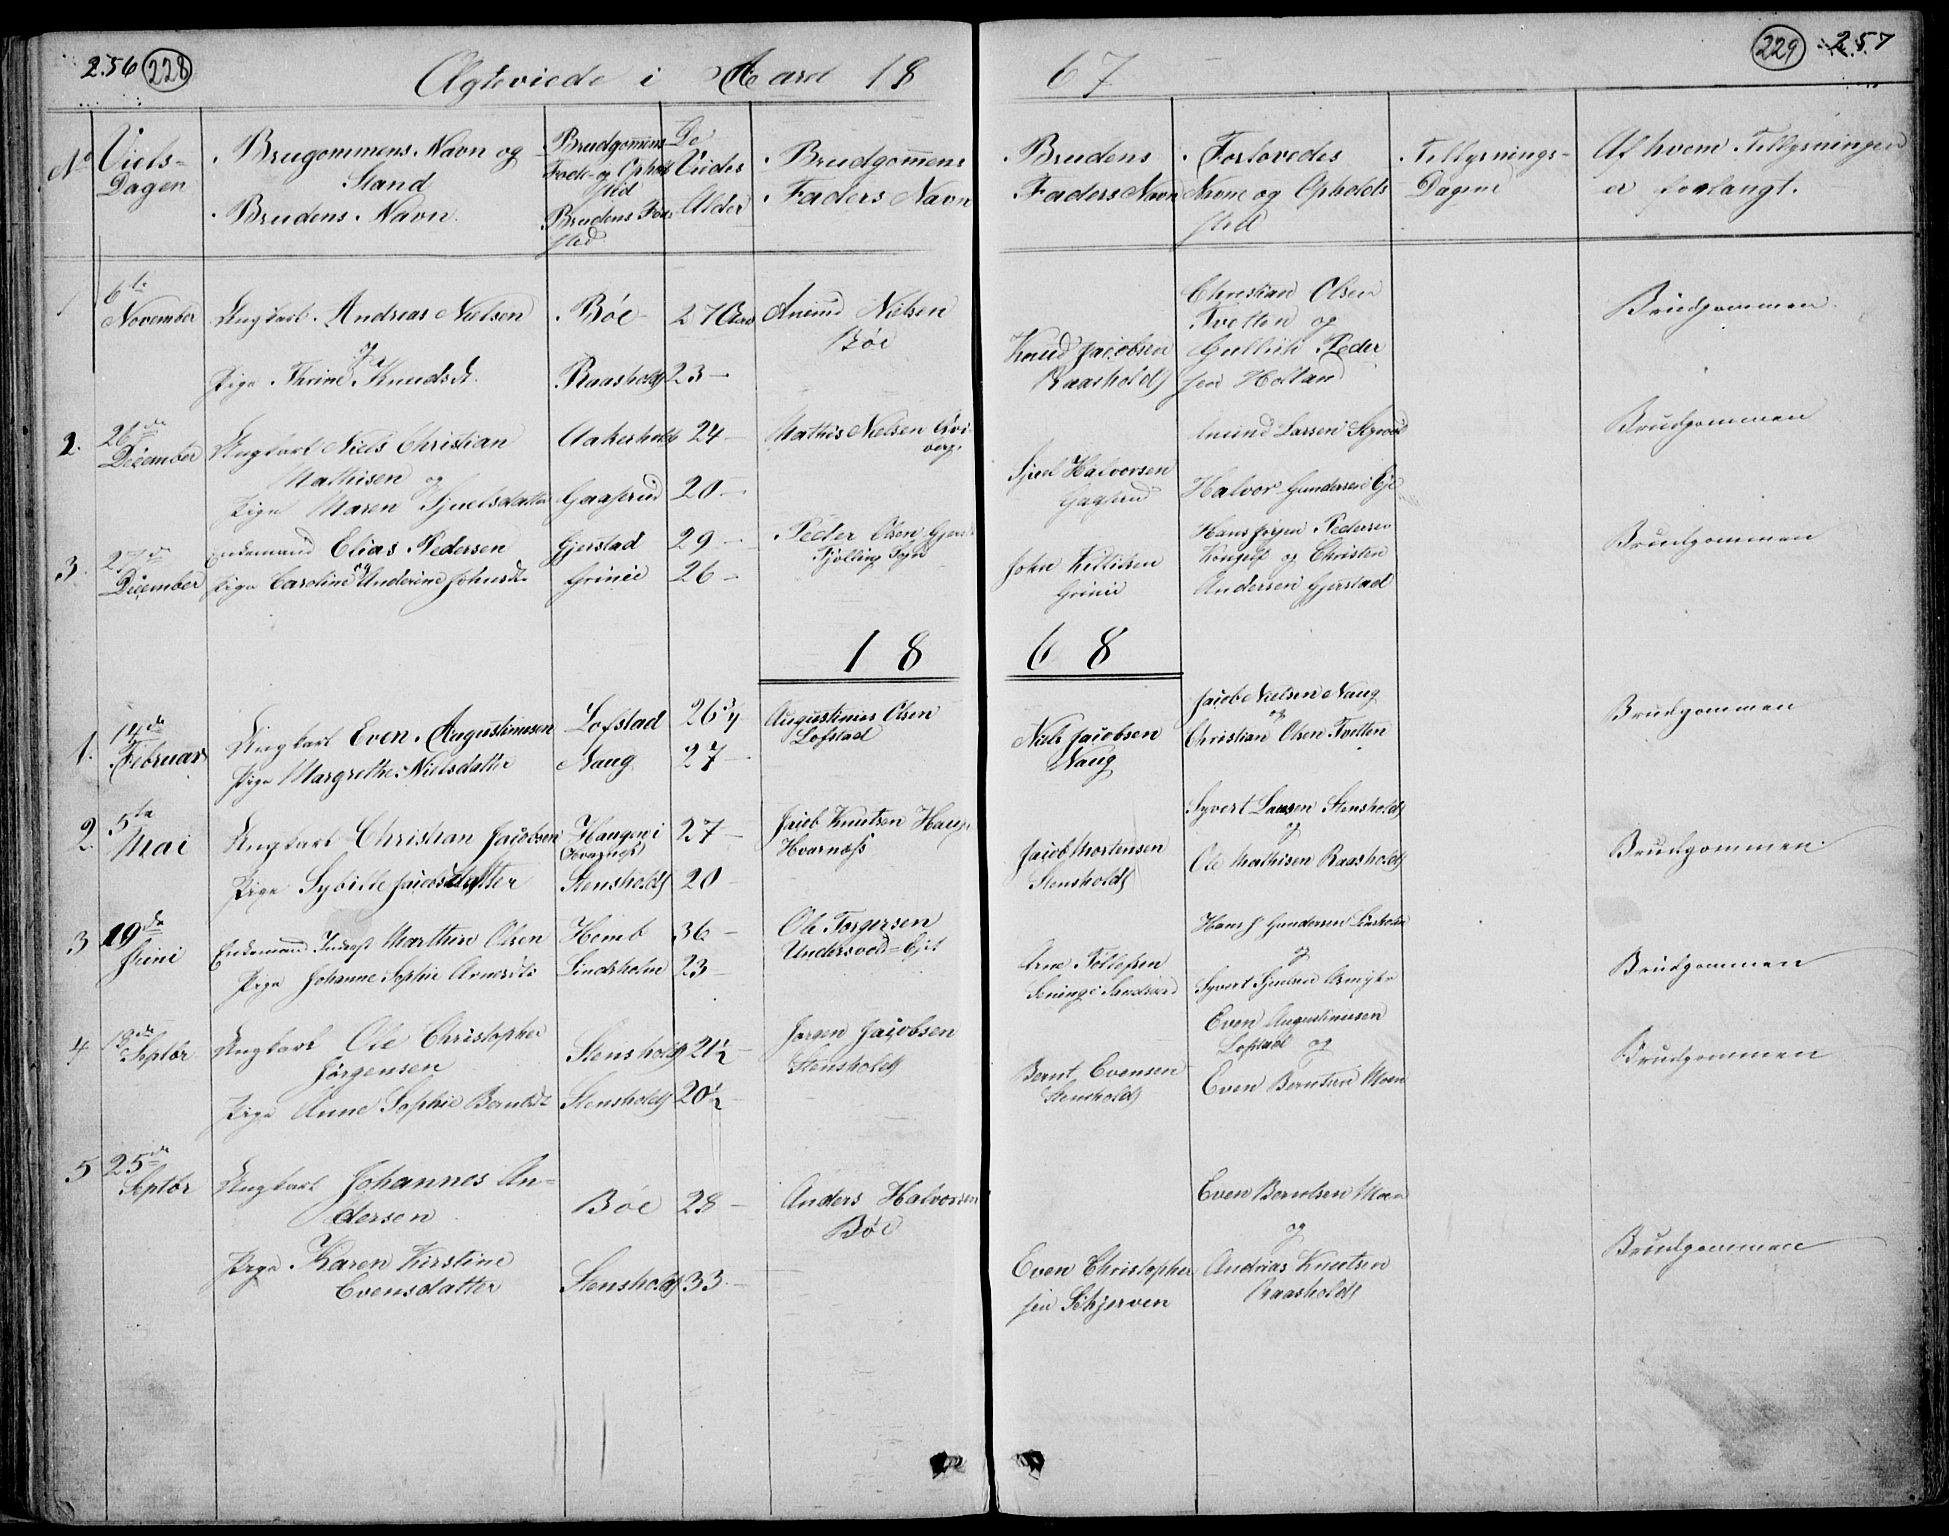 256 228
229 257
Ægteviede i Aaret 18 67
No
Viels-
Dagen
Brugommens Navn og
Stand
Brudens Navn
Brudgommens
Føde- og Ophold
sted
Brudens Føde
sted
De
Viedes
Alder
Brudgommens
Faders Navn
Brudens
Faders Navn
Forlovedes
Navne og Opholds
sted
Tillysnings-
Dagene
Af hvem Tillysningen
er forlangt.
1 6te
November
Ungkarl Andreas Nielsen
og
Pige Thrine Knudsdt.
Bøe
Raasholdt
27 Aar
23 —
Anund Nielsen
Bøe
Knud Jacobsen
Raasholdt
Christian Olsen
Tvetten og
Gullich Peder
sen Holtan
Brudgommen
2. 26de
December
Ungkarl Niels Christian
Mathisen og
Pige Maren Sjuelsdatter
Aakerholt
Gaaserud
24 —
20 —
Mathis Nielsen
Sjuel Halvorsen
Gaaserud
Anund Larsen
Halvor Gundersen Eje
Brudgommen
3. 27de
December
Enkemand Elias Pedersen
og
Pige Caroline Andrine Johnsdt.
Gjerstad
Grinie
29 —
26 —
Peder Olsen Gjerst
Tjølling Sogn
John Killidsen
Grinie
Hans Jørgen Pedersen
og Christen
Andersen Gjerstad
Brudgommen
18 68
1. 14de
Februar
Ungkarl Even Augustinusen
Pige Margrethe Nielsdatter
Lofstad
Naug
26 3/4
27 —
Augustinius Olsen
Lofstad
Niels Jacobsen
Naug
Jacob Nielsen Naug
og
Christian Olsen Tvetten
Brudgommen
2. 5te
Mai
Ungkarl Christian Jacobsen
Pige Sybille Jacobsdatter
Haugen i
Stensholdt
27 —
20 —
Jacob Knutsen Haug
Hvarnæss
Jacob Mortensen
Stensholdt
Syvert Larsen Stensholdt
og
Ole Mathisen Raasholdt
Brudgommen
3 19de
Juni
Enkemand Marthin Olsen
Pige Johanne Sophie Arnesdt.
Hemb
Lindsholm
36 —
23 —
Ole Torgersen
Undersoed-Eje
Arne Tollefsen
Hans J Gundersen
og
Syvert Sjuelsen
Brudgommen
4 18de
Septbr
Ungkarl Ole Christopher
Jørgensen
Pige Anne Sophie Berntsdt
Stensholdt
Stensholdt
21 1/2 —
20 1/2 —
Jørgen Jacobsen
Stensholdt
Bernt Evensen
Stensholdt
Even Augustinusen
Lofstad og
Even Berntsen Moen
Brudgommen
5 25de
Septbr
Ungkarl Johannes An-
dersen
Pige Karen Kirstine
Evensdatter
Bøe
Stensholdt
28 —
33 —
Anders Halvorsen
Bøe
Even Christopher
sen Schjerven
Even Berntsen Moen
og
Andreas Knutsen
Raasholdt
Brudgommen